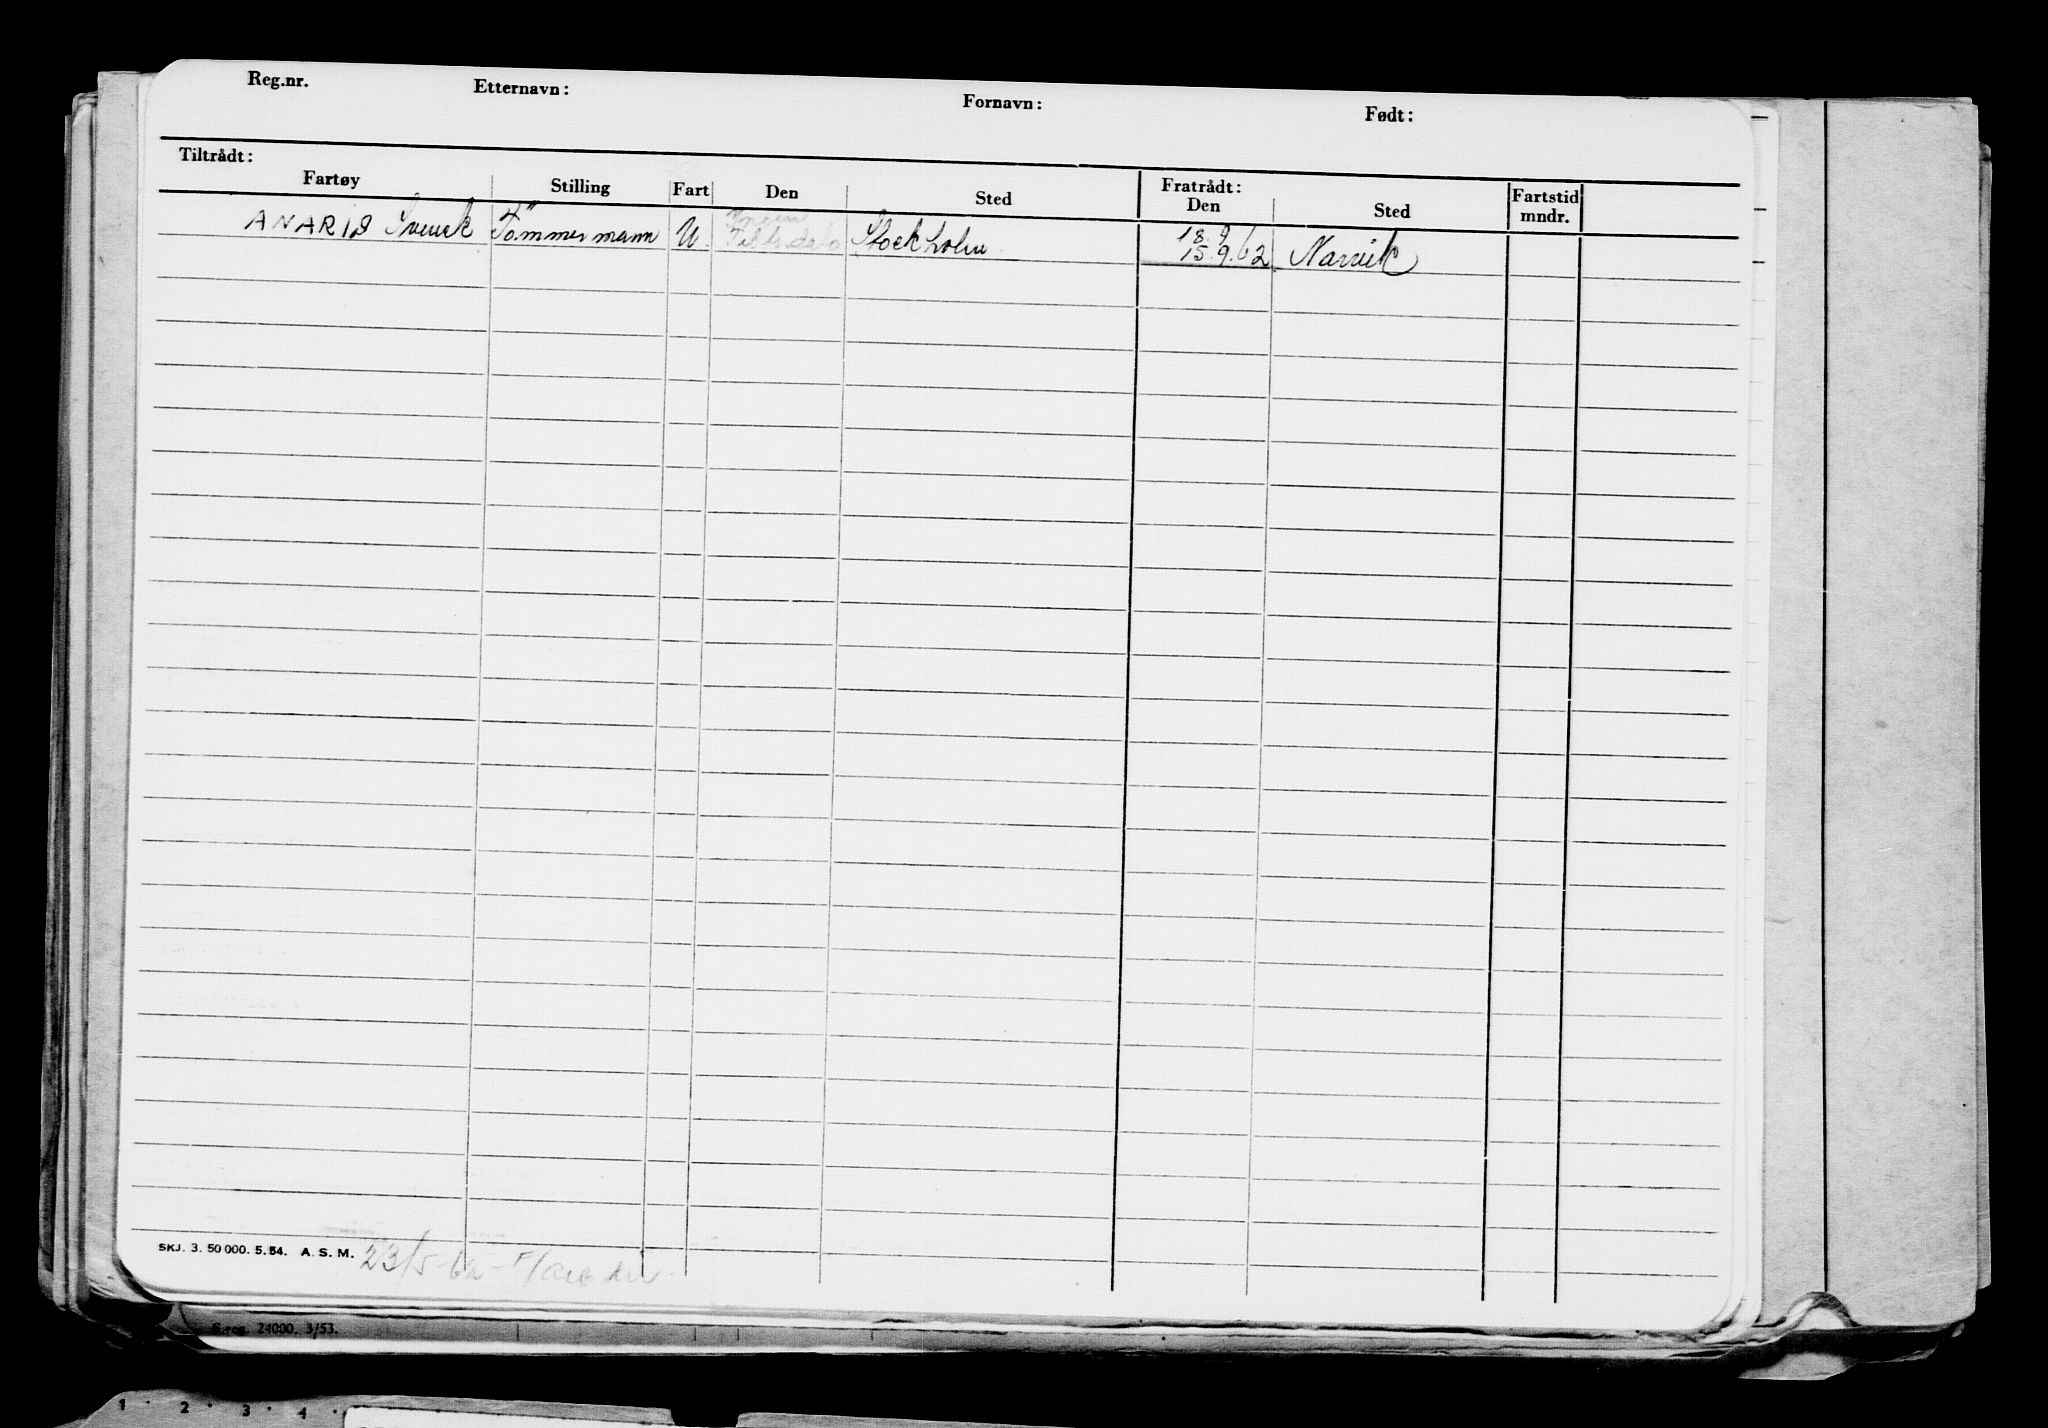 Reg.nr. Etternavn: Fornavn: Født:
Tiltrådt: Fratrådt:
Fartøy Stilling Fart Den Sted Den Sted Fartstid mndr.
18.9
ANARIS Svensk Tömmermann U. Ingen Filtr. dato Stockholm 15.9.62 Narvik
SKJ. 3. 50 000. 5. 54. A. S. M. 23/5-62
S-reg. 24000. 3/53.
1 2 3 4